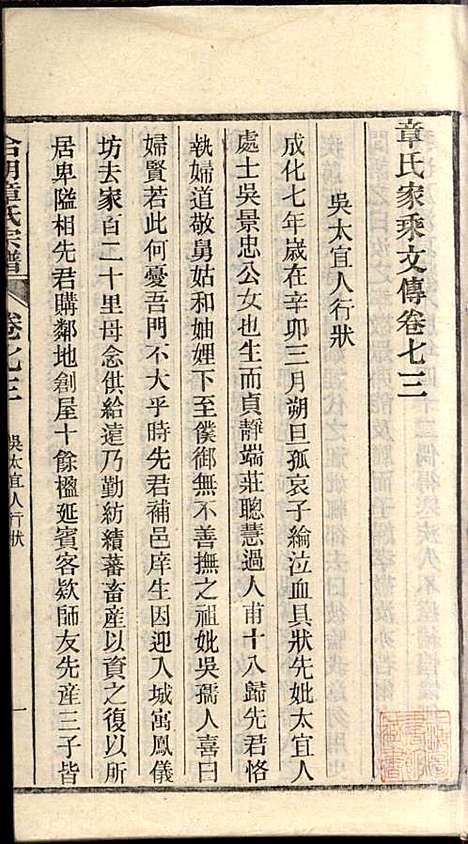 章氏家乘文傳卷七三
吳太宜人行狀
成化七年歲在辛卯三月朔旦孤哀子綸泣血具狀先妣太宜人
處士吳景忠公女也生而貞靜端莊聰慧過人甫十八歸先君恪
執婦道敬舅姑和妯娌下至僕御無不善撫之祖妣吳孺人喜曰
婦賢若此何憂吾門不大乎時先君補邑庠生因迎入城寓鳳儀
坊去家百二十里母念供給遠乃勤紡績蕃畜産以資之復以所
居卑隘相先君購鄰地創屋十餘楹延賓客欵師友先産三子皆
章氏宗譜
卷七三
吳太宜人行狀
一